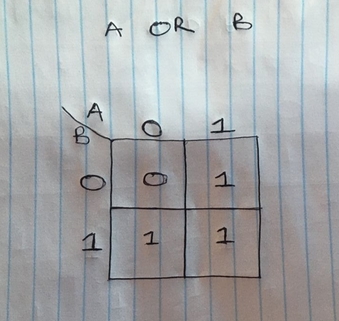 A OR B
A
B
0 1
0 0 1
1 1 1